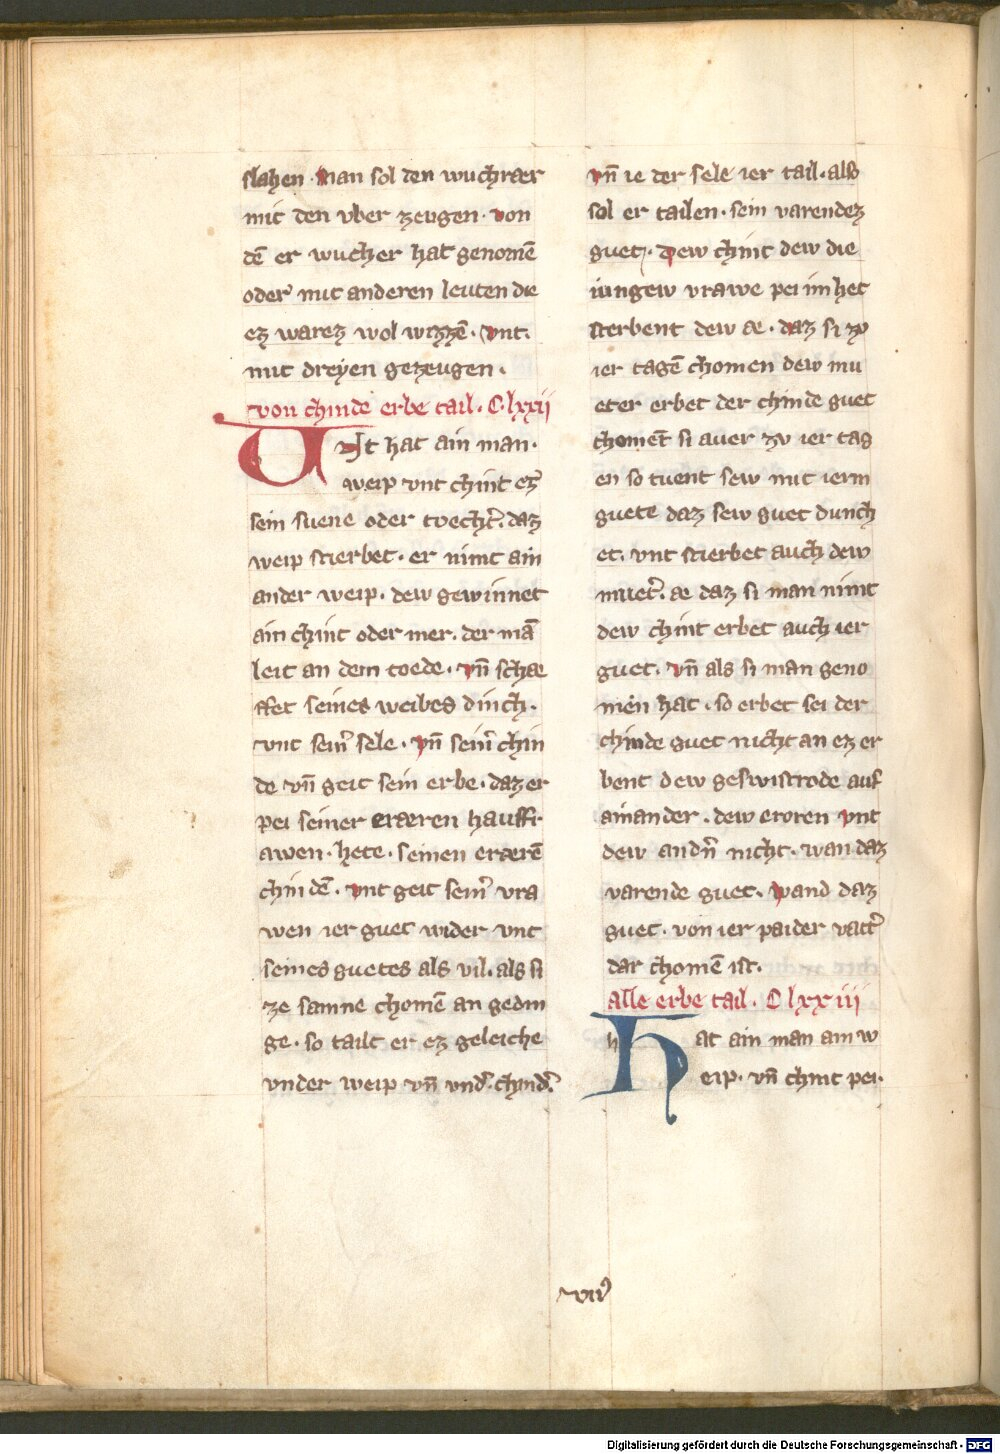 slahen · Man sol den wuchrær
mit den vber zeugen · von
dē er wucher hat genomē
oder mit anderen leuten die
ez warez wol wizzē · vnt.
mit dreyen gezeugen .
von chinde erbe tail . C lxxii
Unt hat ain man .
weip vnt chint ez
sein suene oder toecht̄ . daz
weip stierbet . er nimt ain
ander weip . dew gewinnet
ain chint oder mer . der mā
leit an dem toede . vn̄ schæ
ffet seines weibes dinch .
vnt sein̄ sele . vn̄ sein̄ chin
de vn̄ geit sein erbe . daz er
pei seiner eræren hausfr
awen . hete . seinen ererē
chindē . vnt geit sein̄ vra
wen ier guet wider vnt
seines guetes als vil . als si
ze samne chomē an gedin
ge . so tailt er ez geleiche
vnder weip vn̄ vnd̄ . chind̄ .
vn̄ ie der sele ier tail . also
sol er tailen . sein varendez
guet . Dew chint dew die
iungew vrawe pei im het
sterbent dew æ . daz si zv
ier tagē chomen dew mu
eter erbet der chinde guet
choment si auer zv ier tag
en so tuent sew mit ierm
guete daz sew guet dunch
et . vnt stierbet auch dew
muet̄ . æ daz si man nimt
dew chint erbet auch ier
guet . vn̄ als si man geno
men hat . so erbet sei der
chinde guet nicht an ez er
bent dew geswistrode auf
ainander . dew eroren vnt
dew andn̄ nicht . wan daz
varende guet . wand daz
guet . von ier paider vatt̄
dar chomē ist .
alle erbe tail . C lxxiii
Hat ain man ain w
eip . vn̄ chint pei .
viii⁹
Digitalisierung gefördert durch die Deutsche Forschungsgemeinschaft - DFG